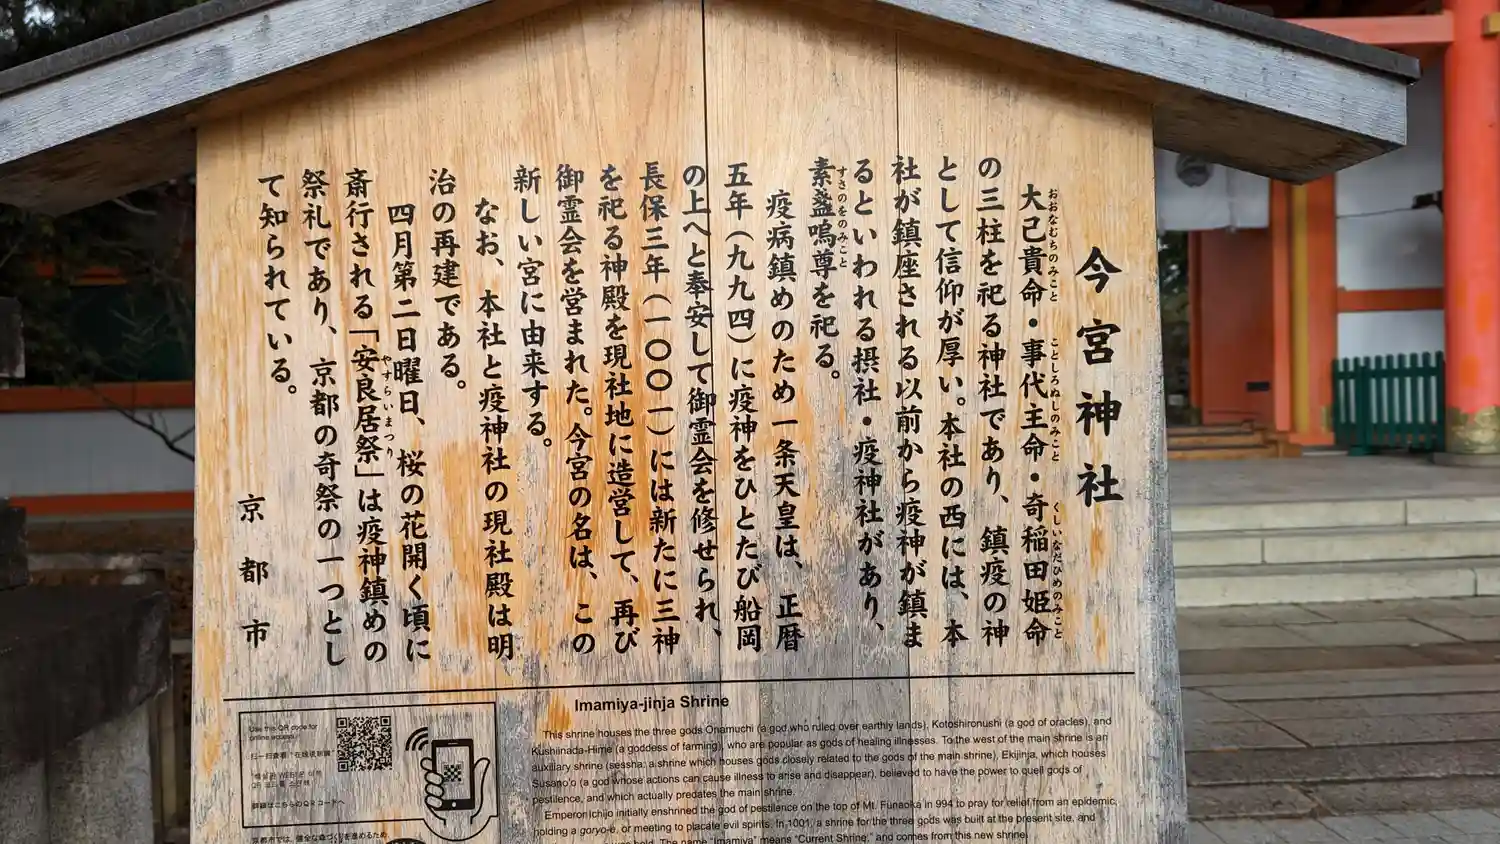 今宮神社
大己貴命・事代主命・奇稲田姫命
おおなむちのみこと ことしろぬしのみこと くしいなだひめのみこと
の三柱を祀る神社であり、鎮疫の神
として信仰が厚い。本社の西には、本
社が鎮座される以前から疫神が鎮ま
るといわれる摂社・疫神社があり、
素盞嗚尊を祀る。
すさのをのみこと
疫病鎮めのため一条天皇は、正暦
五年(九九四)に疫神をひとたび船岡
の上へと奉安して御霊会を修せられ、
長保三年(一〇〇一)には新たに三神
を祀る神殿を現社地に造営して、再び
御霊会を営まれた。今宮の名は、この
新しい宮に由来する。
なお、本社と疫神社の現社殿は明
治の再建である。
四月第二日曜日、桜の花開く頃に
斎行される「安良居祭」は疫神鎮めの
やすらいまつり
祭礼であり、京都の奇祭の一つとし
て知られている。
京都市
Imamiya-jinja Shrine
This shrine houses the three gods Onamuchi (a god who ruled over earthly lands), Kotoshironushi (a god of oracles), and
Kushiinada-Hime (a goddess of farming), who are popular as gods of healing illnesses. To the west of the main shrine is an
auxiliary shrine (sessha: a shrine which houses gods closely related to the gods of the main shrine), Ekijinja, which houses
Susano'o (a god whose actions can cause illness to arise and disappear), believed to have the power to quell gods of
pestilence, and which actually predates the main shrine.
Emperor Ichijo initially enshrined the god of pestilence on the top of Mt. Funaoka in 994 to pray for relief from an epidemic,
holding a goryo-e, or meeting to placate evil spirits. In 1001, a shrine for the three gods was built at the present site, and
was held. The name "Imamiya" means "Current Shrine," and comes from this new shrine.
Use this QR code for
online access.
詳細はこちらのQRコードへ
京都市では、健全な森づくりを進めるため、